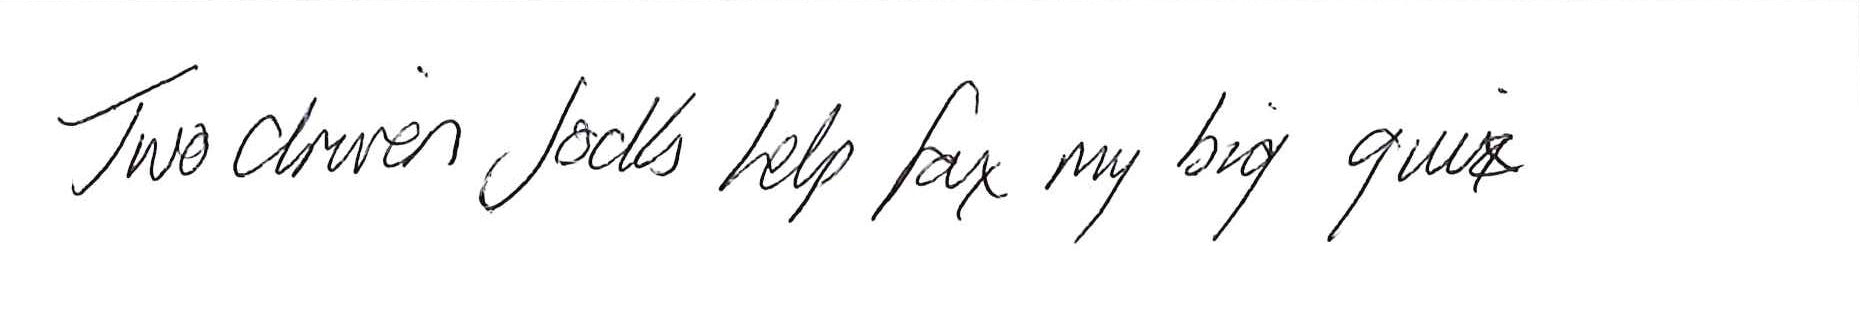 Two driven Jocks help fax my big quiz